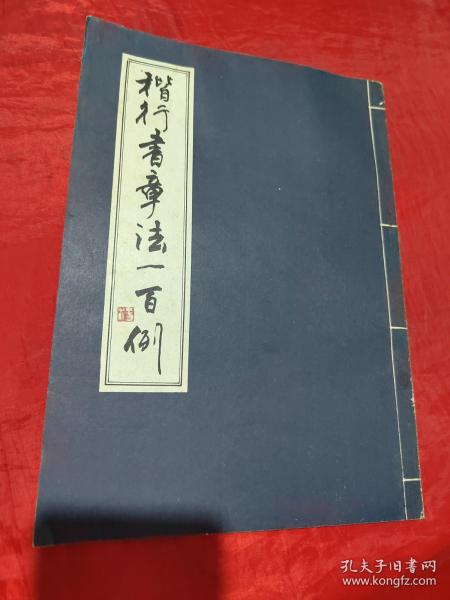 楷行书章法一百例
孔夫子旧书网
www.kongfz.com